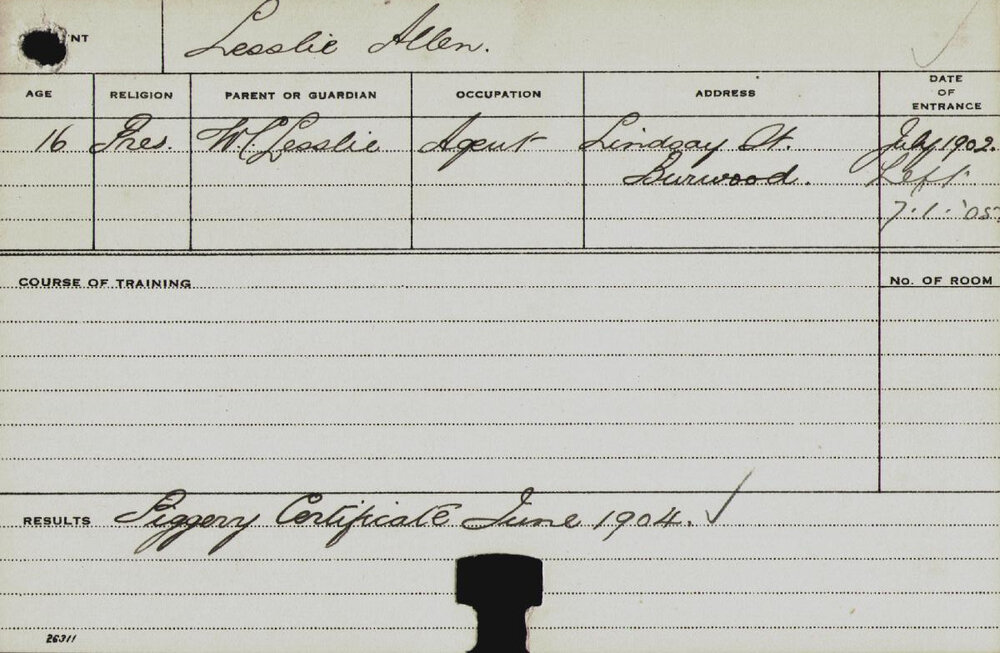 NT Lesslie Allen.
AGE RELIGION PARENT OR GUARDIAN OCCUPATION ADDRESS DATE OF ENTRANCE
16 Pres. W. C. Lesslie Agent Lindsay St. July 1902.
Burwood. Left
7.1.'05
COURSE OF TRAINING No. OF ROOM
RESULTS Piggery Certificate June 1904. ✓
26311